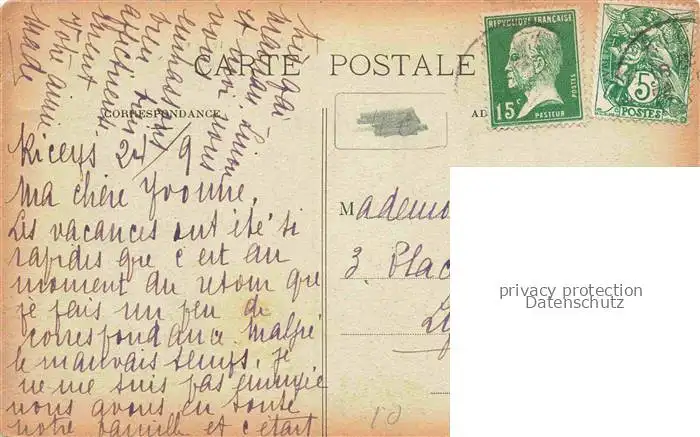 CARTE POSTALE
CORRESPONDANCE
AD
RÉPUBLIQUE FRANÇAISE
15c
POSTES
PASTEUR
5
POSTES
Riceys 24/9
Ma chère Yvonne,
Les vacances ont été si
rapides que c'est au
moment du retour que
je fais un peu de
correspondance. Malgré
le mauvais temps, je
ne me suis pas ennuyée
nous avons eu toute
notre famille et c'était
très gai
Maman
et
nous vous
embrassons
bien
affectueuse
ment
Votre amie
Made
Mademo
3, Plac
Ly
10
privacy protection
Datenschutz